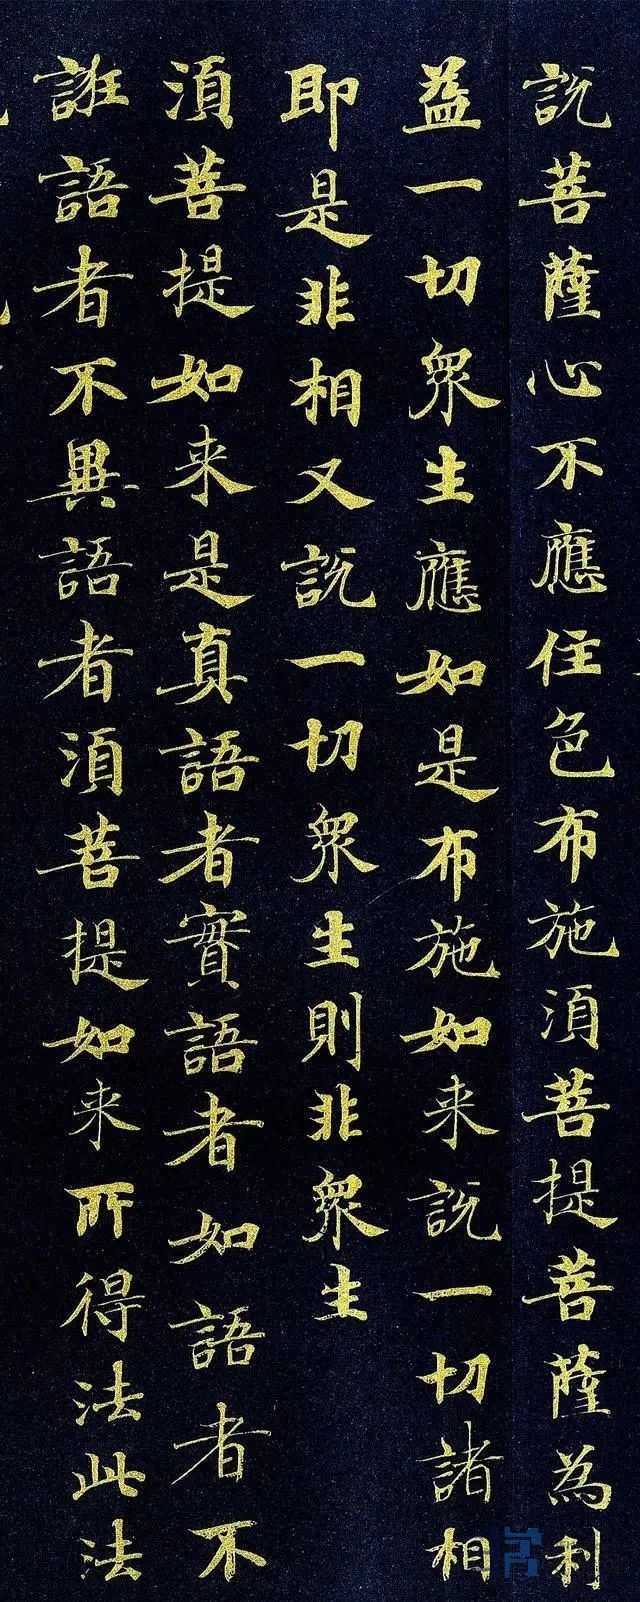 說菩薩心不應住色布施須菩提菩薩為利
益一切眾生應如是布施如来說一切諸相
即是非相又說一切眾生則非眾生
須菩提如来是真語者實語者如語者不
誑語者不異語者須菩提如来所得法此法